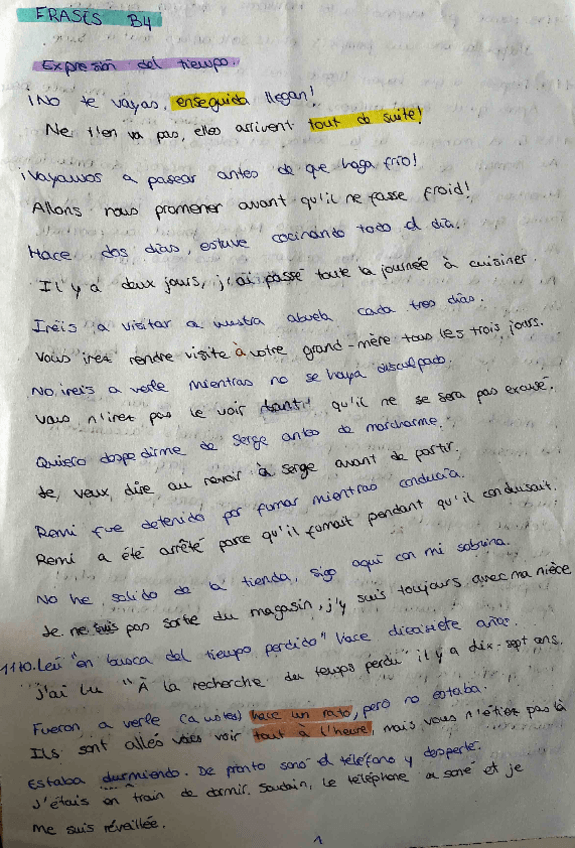 FRASES B4
Expresión del tiempo.
¡No te vayas, enseguida llegan!
Ne t'en va pas, elles arrivent tout de suite!
¡Vayamos a pasear antes de que haga frío!
Allons nous promener avant qu'il ne fasse froid!
Hace dos días, estuve cocinando todo el día.
Il y a deux jours, j'ai passé toute la journée à cuisiner.
Iréis a visitar a vuestra abuela cada tres días.
Vous irez rendre visite à votre grand-mère tous les trois jours.
No ireis a verle mientras no se haya disculpado.
Vous n'irez pas le voir tant qu'il ne se sera pas excusé.
Quiero despedirme de Serge antes de marcharme.
Je, veux, dire au revoir à Serge avant de partir.
Remi fue detenido por fumar mientras conducía.
Remi a été arrêté parce qu'il fumait pendant qu'il conduisait.
No he salido de la tienda, sigo aquí con mi sobrina.
Je ne suis pas sortie du magasin, j'y suis toujours avec ma nièce
1110. Leí "en busca del tiempo perdido" hace diecisiete años.
J'ai lu "À la recherche du temps perdu" il y a dix-sept ans.
Fueron a verle (a ustes) hace un rato, pero no estaba.
Ils sont allés vous voir tout à l'heure, mais vous n'étiez pas là
Estaba durmiendo. De pronto sonó el teléfono y desperté.
J'étais en train de dormir. Soudain, le téléphone a soné et je
me suis réveillée.
1